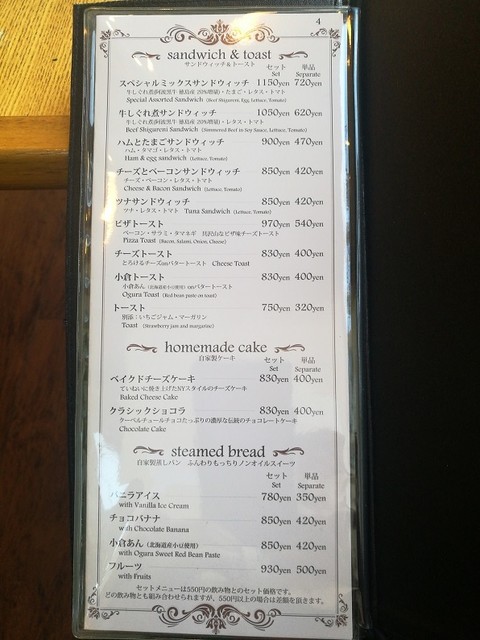 4
sandwich & toast
サンドウィッチ＆トースト
セット 単品
Set Separate
スペシャルミックスサンドウィッチ 1150yen 720yen
牛しぐれ煮サンドウィッチ 1050yen 620yen
Beef Shigureni Sandwich (Simmered Beef in Soy Sauce, Lettuce, Tomato)
ハムとたまごサンドウィッチ 900yen 470yen
ハム・タマゴ・レタス・トマト
Ham & egg sandwich (Lettuce, Tomato)
チーズとベーコンサンドウィッチ 850yen 420yen
チーズ・ベーコン・レタス・トマト
Cheese & Bacon Sandwich (Lettuce, Tomato)
ツナサンドウィッチ 850yen 420yen
ツナ・レタス・トマト Tuna Sandwich (Lettuce, Tomato)
ピザトースト 970yen 540yen
ベーコン・サラミ・タマネギ 具沢山なピザ味チーズトースト
Pizza Toast (Bacon, Salami, Onion, Cheese)
チーズトースト 830yen 400yen
とろけるチーズonバタートースト Cheese Toast
小倉トースト 830yen 400yen
小倉あん (北海道産小豆使用) onバタートースト
Ogura Toast (Red bean paste on toast)
トースト 750yen 320yen
別添：いちごジャム・マーガリン
Toast (Strawberry jam and margarine)
homemade cake
自家製ケーキ
セット 単品
Set Separate
ベイクドチーズケーキ 830yen 400yen
ていねいに焼き上げたNYスタイルのチーズケーキ
Baked Cheese Cake
クラシックショコラ 830yen 400yen
クーベルチュールチョコたっぷりの濃厚な伝統のチョコレートケーキ
Chocolate Cake
steamed bread
自家製蒸しパン ふんわりもっちりノンオイルスイーツ
セット 単品
Set Separate
バニラアイス 780yen 350yen
with Vanilla Ice Cream
チョコバナナ 850yen 420yen
with Chocolate Banana
小倉あん (北海道産小豆使用) 850yen 420yen
with Ogura Sweet Red Bean Paste
フルーツ 930yen 500yen
with Fruits
セットメニューは550円の飲み物とのセット価格です。
どの飲み物とも組み合わせられますが、550円以上の場合は差額を頂きます。